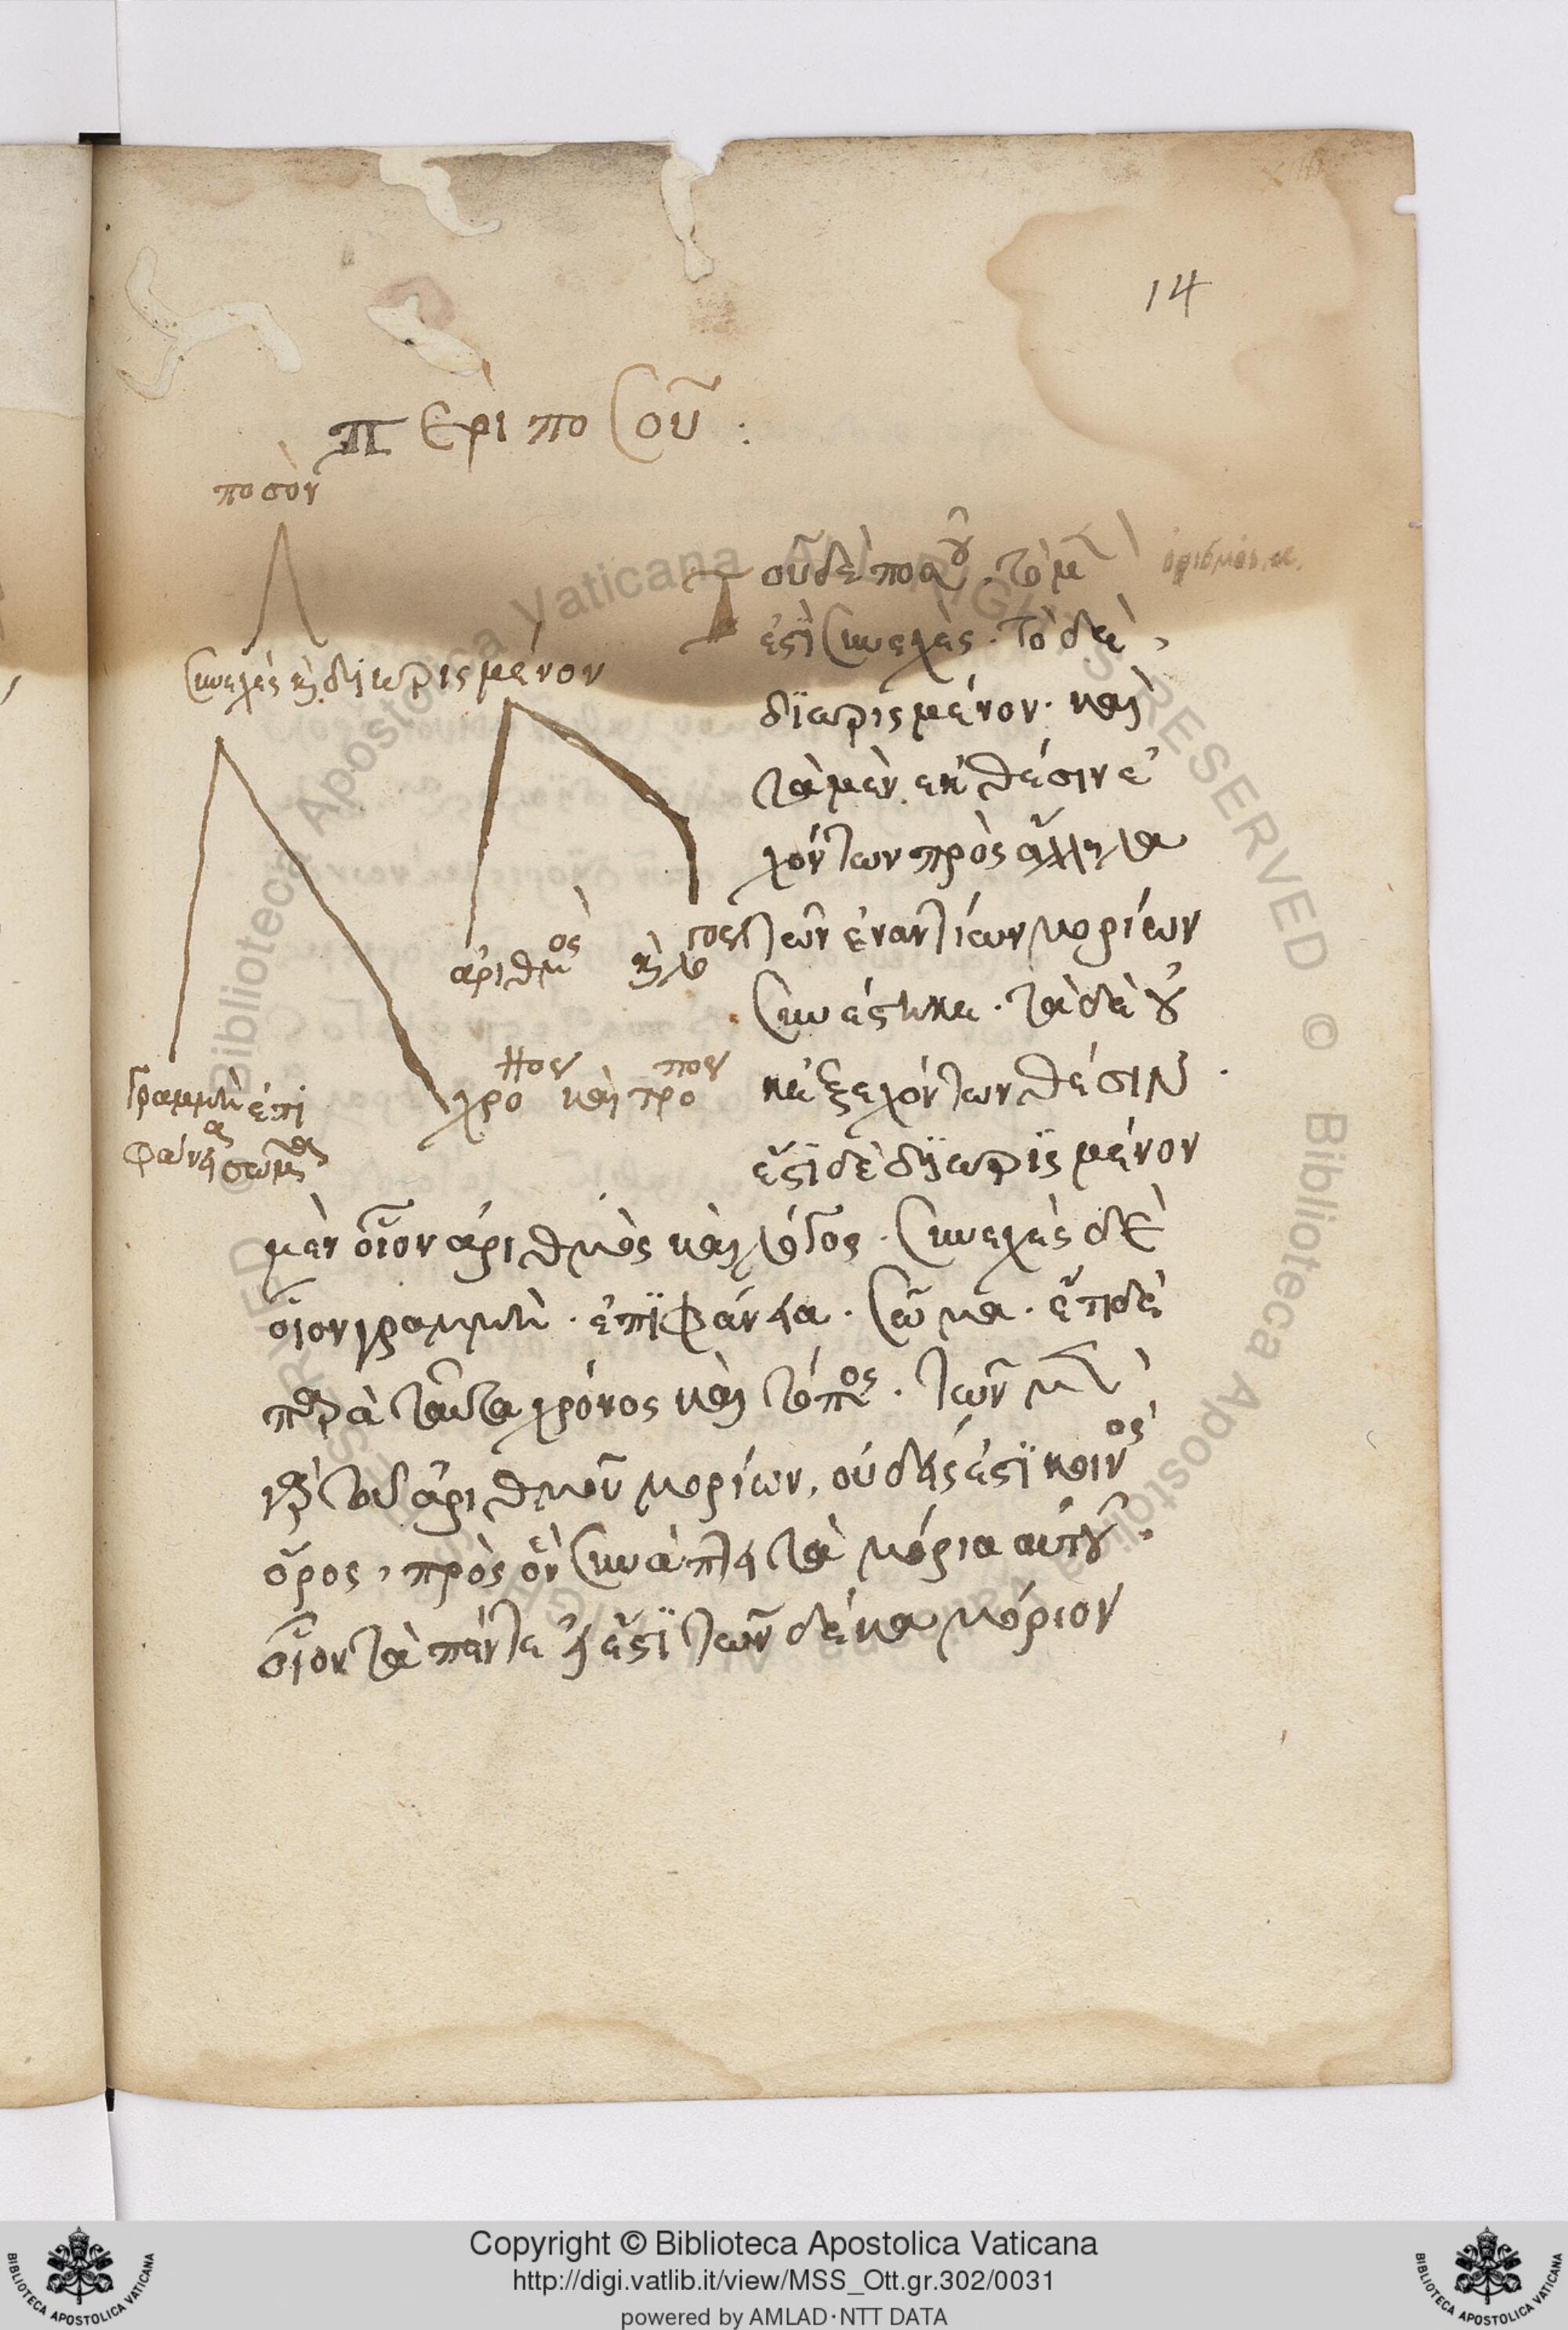 14
Περὶ ποσοῦ :
ποσὸν
συνεχὲς κὶ διωρισμένον
Τοῦ δὲ ποσοῦ. τὸ μὲν
ἐστὶ συνεχὲς. τὸ δὲ,
διωρισμένον. καὶ
τὰ μὲν ἐκ θέσιν ἐ
χόντων πρὸς ἄλληλα
τῶν ἐναντίων μορίων
συνέστηκε. τὰ δὲ οὐ
κ ἐξ ἐχόντων θέσιν.
ἔστι δὲ διωρισμένον
ἀριθμὸς
γραμμὴ ἐπι
φάνεια σῶμα
χρο καὶ
μὲν οἷον ἀριθμὸς καὶ λόγος. συνεχὲς δὲ
οἷον γραμμὴ. ἐπιφάνεια. σῶμα. ἔτι δὲ
παρὰ ταῦτα χρόνος καὶ τόπος. τῶν μὲν
γὰρ τοῦ ἀριθμοῦ μορίων, οὐδείς ἐστι κοινὸς
ὅρος, πρὸς ὃν συνάπτει τὰ μόρια αὐτοῦ.
οἷον τὰ πέντε εἰ ἔστι τῶν δέκα μόριον
Copyright © Biblioteca Apostolica Vaticana
http://digi.vatlib.it/view/MSS_Ott.gr.302/0031
powered by AMLAD·NTT DATA